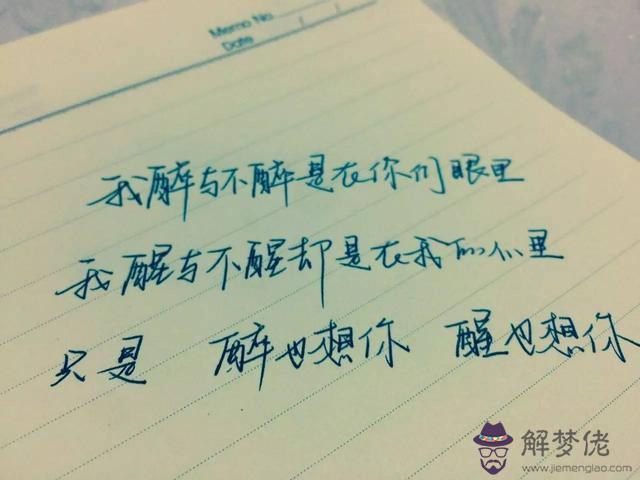 Memo No.
Date / /
我醉与不醉是在你们眼里
我醒与不醒却是在我的心里
只是 醉也想你 醒也想你
解梦佬
www.jiemenglao.com